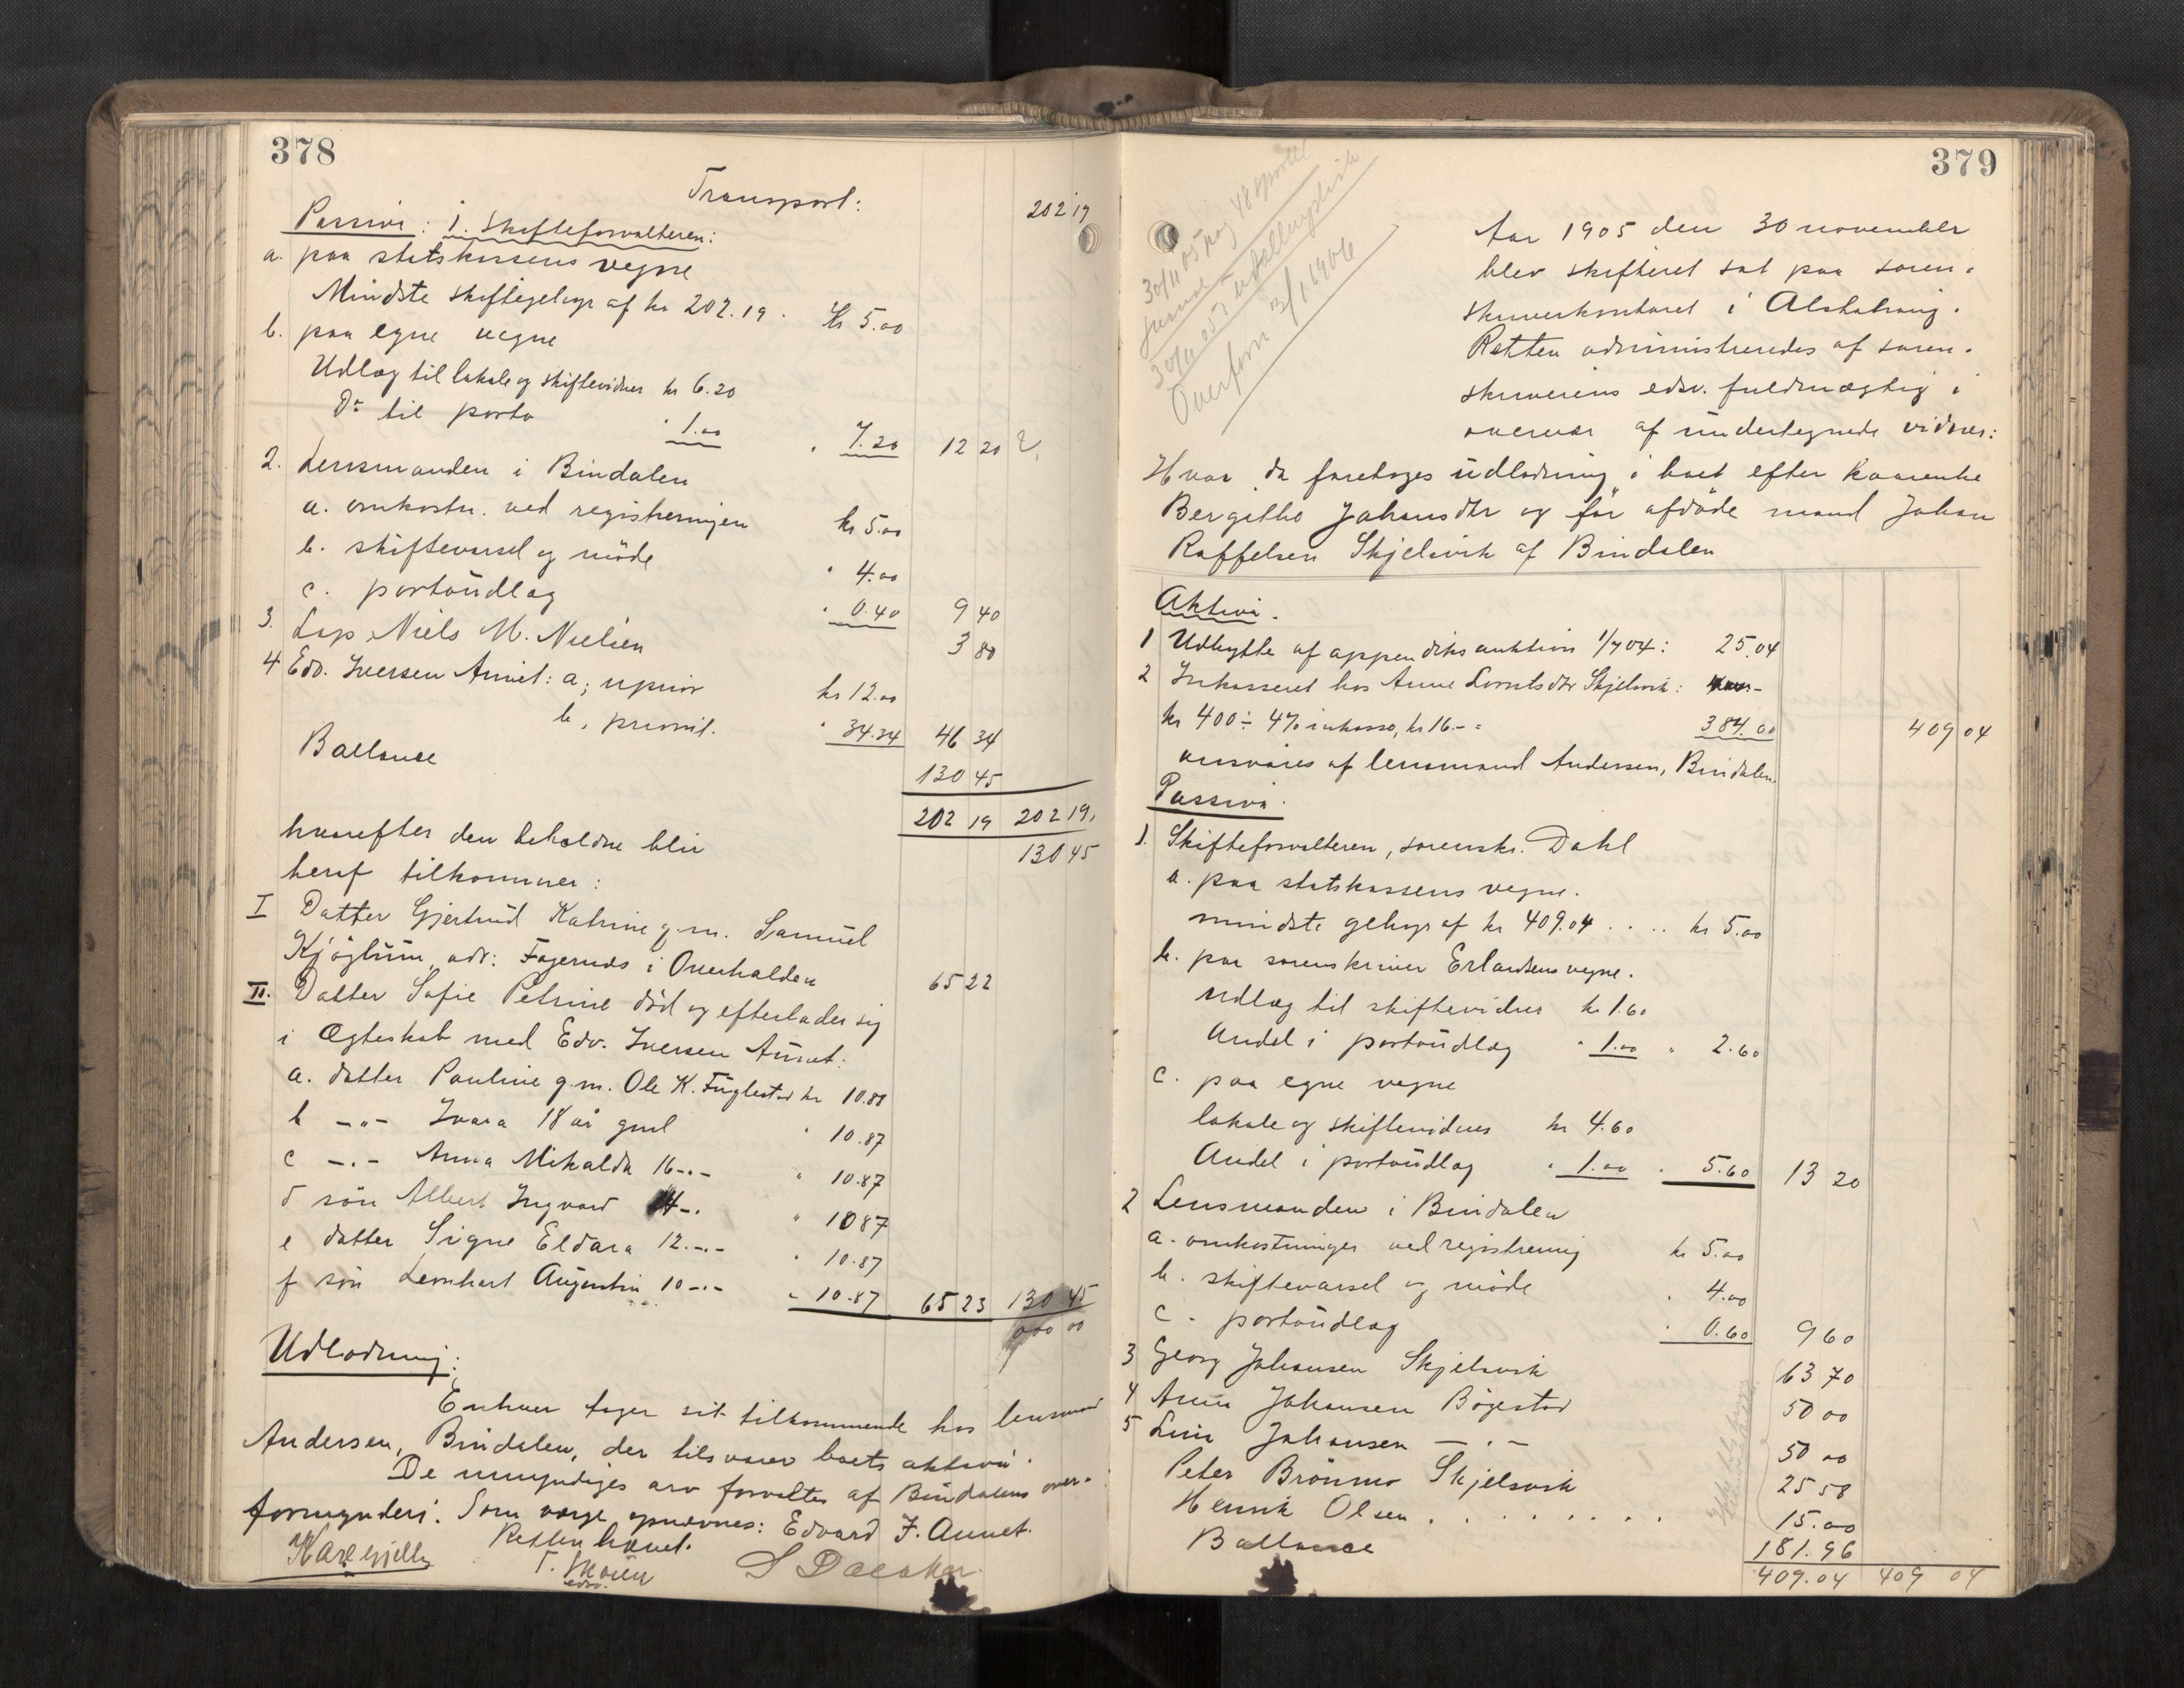 378
Transport: 202 19
Passiva: 1. Skifteforvalteren:
a. paa statskassens vegne
Mindste skiftegebyr af kr 202.19. Kr 5.00
b. paa egne vegne
Udlæg til lokale og skiftevidner kr 6.20
Do til porto " 1.00 " 7.20 12 20
2. Lensmanden i Bindalen
a. omkostn. ved registreringen kr 5.00
b. skiftevarsel og möde " 4.00
c. portoudlæg " 0.40 9 40
3. Lap Niels M. Nielsen 3 80
4 Edv. Iversen Aunet: a, uprior kr 12.00
b, privil. " 34.34 46 34
Ballance 130 45
202 19 202 19
hvorefter den beholdne blir 130 45
heraf tilkommer:
I Datter Gjertrud Katrine g.m. Samuel
Kjøglum, adr: Fagernes i Overhalden 65 22
II. Datter Sofie Petrine död og efterlader sig
i Ægteskab med Edv. Iversen Aunet:
a. datter Pauline g.m. Ole K. Fuglestad kr 10.88
b -"- Ivara 18 år gml " 10.87
c -"- Anna Mikalda 16-"- " 10.87
d sön Albert Ingvard 14-" " 10 87
e datter Signe Eldara 12-"- " 10.87
f sön Leonhart Augustin 10-"- " 10.87 65 23 130 45
000 00
Udlodning:
Enhver tager sit tilkommende hos lensmand
Andersen, Bindalen, der tilsvarer boets aktiva.
De umyndiges arv forvaltes af Bindalens over-
formynderi. Som værge opnævnes: Edvard I. Aunet.
Retten hævet.
379
30/11 05
30/11 05 udallingsliste
Overført 3/1 1906
Aar 1905 den 30 november
blev skifteret sat paa soren-
skriverkontoret i Alstahaug.
Retten administreredes af soren-
skriverens edsv. fuldmægtig i
overvær af undertegnede vidner:
Hvor da foretoges udlodning i boet efter kaarenke
Bergitha Johansdtr og før afdöde mand Johan
Raffelsen Skjelsvik af Bindalen
Aktiva.
1 Udbytte af appendiksauktion 1/7 04: 25.04
2 Inkasseret hos Anne Lorntsdtr Skjelsvik:
kr 400 ÷ 4% inkasso, kr 16.- = 384.00 409 04
ansvares af lensmand Andersen, Bindalen.
Passiva.
1. Skifteforvalteren, sorenskr. Dahl
a. paa statskassens vegne.
mindste gebyr af kr 409.04 .... kr 5.00
b. paa sorenskriver Erlandsens vegne.
udlæg til skiftevidner kr 1.60
Andel i portoudlæg " 1.00 " 2.60
c. paa egne vegne
lokale og skiftevidner kr 4.60
Andel i portoudlæg " 1.00 " 5.60 13 20
2 Lensmanden i Bindalen
a. omkostninger ved registrering kr 5.00
b. skiftevarsel og möde " 4.00
c. portoudlæg " 0.60 9 60
3 Georg Johansen Skjelsvik 63 70
4 Anna Johansen Bøgestad 50 00
5 Lina Johansen -"- 50 00
Peter Brönmo Skjelsvik 25 58
Henrik Olsen ........ 15.00
Ballance 181.96
409.04 409 04